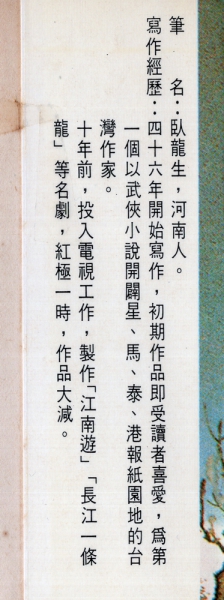 筆　名：臥龍生，河南人。
寫作經歷：四十六年開始寫作，初期作品即受讀者喜愛，爲第
一個以武俠小說開闢星、馬、泰、港報紙園地的台
灣作家。
十年前，投入電視工作，製作「江南遊」「長江一條
龍」等名劇，紅極一時，作品大減。